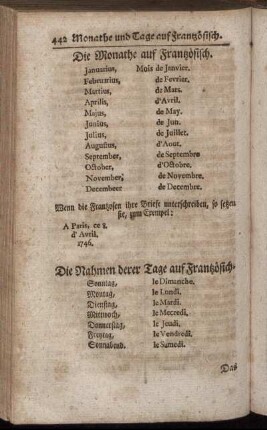 442 Monathe und Tage auf Frantzösisch.
Die Monathe auf Frantzösisch.
Januarius, Mois de Janvier.
Februarius, de Fevrier.
Martius, de Mars.
Aprilis, d'Avril.
Majus, de May.
Junius, de Jun.
Julius, de Juillet.
Augustus, d'Aout.
September, de Septembre
October, d'Octobre.
November, de Novembre.
December de Decembre.
Wenn die Frantzosen ihre Briefe unterschreiben, so setzen
sie, zum Exempel:
A Paris, ce 8.
d'Avril.
1746.
Die Nahmen derer Tage auf Frantzösisch.
Sonntag, le Dimanche.
Montag, le Lundi.
Dienstag, le Mardi.
Mittwoch, le Mecredi.
Donnerstag, le Jeudi.
Freytag, le Vendredi.
Sonnabend. le Samedi.
Das